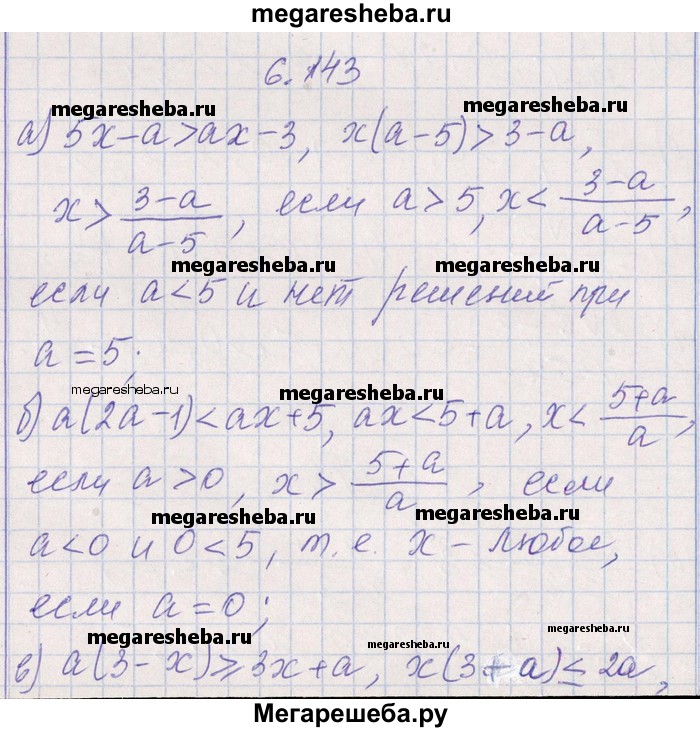 megaresheba.ru
6.143
megaresheba.ru megaresheba.ru
а) 5x-a>ax-3, x(a-5)>3-a,
x> (3-a)/(a-5), если a>5, x< (3-a)/(a-5),
megaresheba.ru megaresheba.ru
если a<5 и нет решений при
a=5;
megaresheba.ru megaresheba.ru
б) a(2a-1)<ax+5, ax<5+a, x< (5+a)/a,
если a>0, x> (5+a)/a, если
megaresheba.ru megaresheba.ru
a<0 и 0<5, т.е. x - любое,
если a=0;
megaresheba.ru megaresheba.ru megaresheba.ru
в) a(3-x)⩾3x+a, x(3+a)≤2a,
Мегарешеба.ру